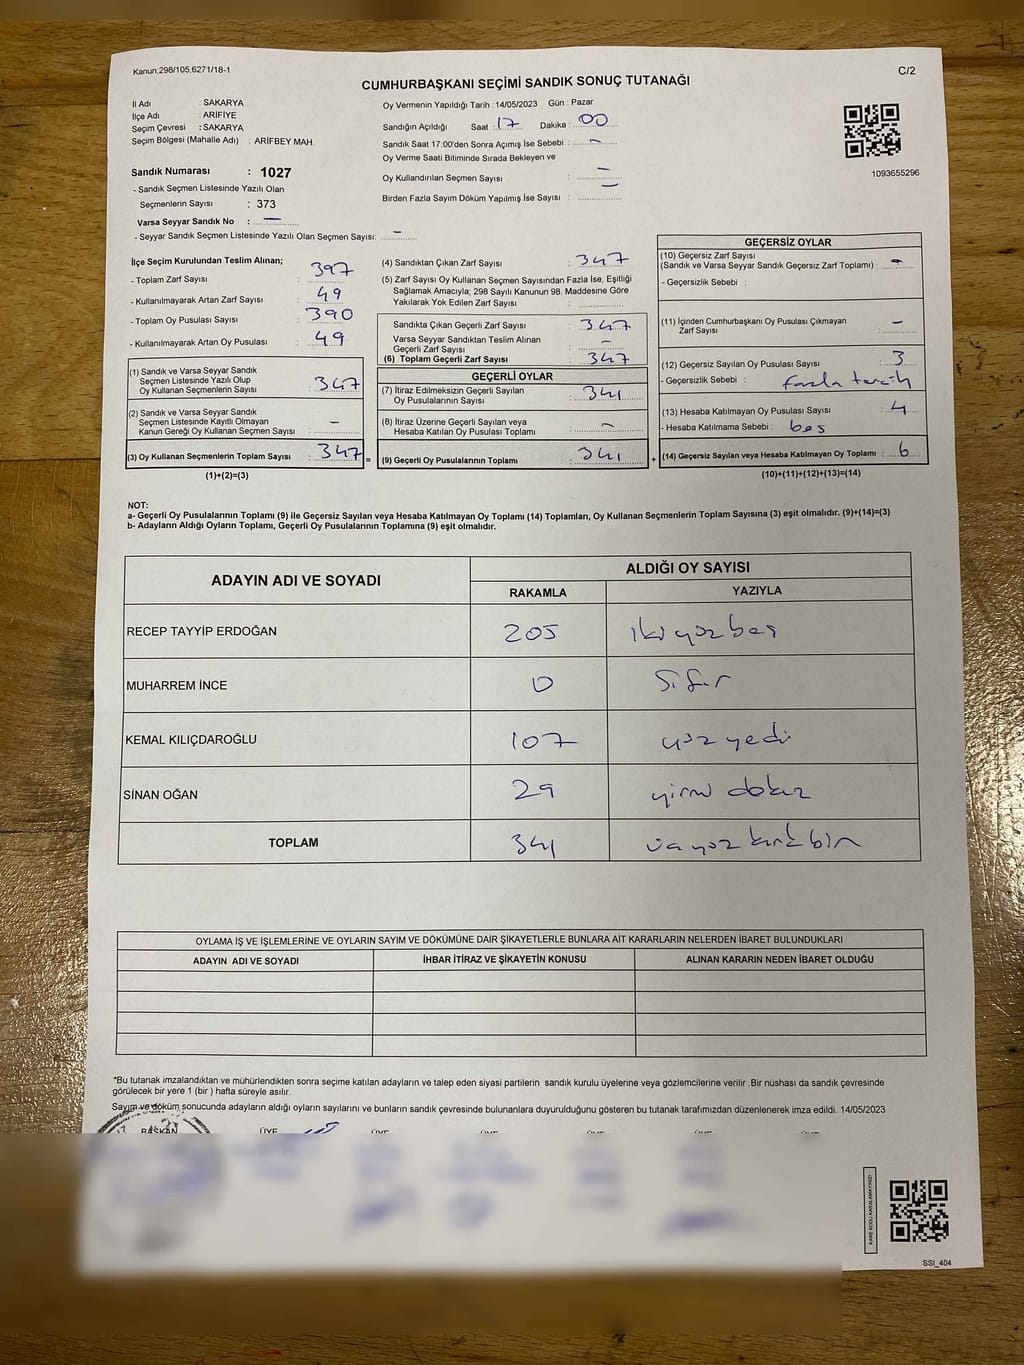 Kanun;298/105,6271/18-1
C/2
CUMHURBAŞKANI SEÇİMİ SANDIK SONUÇ TUTANAĞI
İl Adı : SAKARYA
İlçe Adı : ARİFİYE
Seçim Çevresi : SAKARYA
Seçim Bölgesi (Mahalle Adı) : ARİFBEY MAH.
Sandık Numarası : 1027
- Sandık Seçmen Listesinde Yazılı Olan
Seçmenlerin Sayısı : 373
Varsa Seyyar Sandık No : —
- Seyyar Sandık Seçmen Listesinde Yazılı Olan Seçmen Sayısı: -
Oy Vermenin Yapıldığı Tarih : 14/05/2023 Gün : Pazar
Sandığın Açıldığı Saat : 17 Dakika : 00
Sandık Saat 17:00'den Sonra Açımış İse Sebebi : -
Oy Verme Saati Bitiminde Sırada Bekleyen ve
Oy Kullandırılan Seçmen Sayısı : —
Birden Fazla Sayım Döküm Yapılmış İse Sayısı : —
1093655296
İlçe Seçim Kurulundan Teslim Alınan;
- Toplam Zarf Sayısı : 397
- Kullanılmayarak Artan Zarf Sayısı : 49
- Toplam Oy Pusulası Sayısı : 390
- Kullanılmayarak Artan Oy Pusulası : 49
(1) Sandık ve Varsa Seyyar Sandık
Seçmen Listesinde Yazılı Olup
Oy Kullanan Seçmenlerin Sayısı : 347
(2) Sandık ve Varsa Seyyar Sandık
Seçmen Listesinde Kayıtlı Olmayan
Kanun Gereği Oy Kullanan Seçmen Sayısı : -
(3) Oy Kullanan Seçmenlerin Toplam Sayısı : 347 =
(1)+(2)=(3)
(4) Sandıktan Çıkan Zarf Sayısı : 347
(5) Zarf Sayısı Oy Kullanan Seçmen Sayısından Fazla İse, Eşitliği
Sağlamak Amacıyla; 298 Sayılı Kanunun 98. Maddesine Göre
Yakılarak Yok Edilen Zarf Sayısı :
Sandıkta Çıkan Geçerli Zarf Sayısı : 347
Varsa Seyyar Sandıktan Teslim Alınan
Geçerli Zarf Sayısı : -
(6) Toplam Geçerli Zarf Sayısı : 347
GEÇERLİ OYLAR
(7) İtiraz Edilmeksizin Geçerli Sayılan
Oy Pusulalarının Sayısı : 341
(8) İtiraz Üzerine Geçerli Sayılan veya
Hesaba Katılan Oy Pusulası Toplamı : -
(9) Geçerli Oy Pusulalarının Toplamı : 341 +
GEÇERSİZ OYLAR
(10) Geçersiz Zarf Sayısı
(Sandık ve Varsa Seyyar Sandık Geçersiz Zarf Toplamı) : -
- Geçersizlik Sebebi :
(11) İçinden Cumhurbaşkanı Oy Pusulası Çıkmayan
Zarf Sayısı : -
(12) Geçersiz Sayılan Oy Pusulası Sayısı : 3
- Geçersizlik Sebebi : fazla tercih
(13) Hesaba Katılmayan Oy Pusulası Sayısı :
- Hesaba Katılmama Sebebi : boş
(14) Geçersiz Sayılan veya Hesaba Katılmayan Oy Toplamı : 6
(10)+(11)+(12)+(13)=(14)
NOT:
a- Geçerli Oy Pusulalarının Toplamı (9) ile Geçersiz Sayılan veya Hesaba Katılmayan Oy Toplamı (14) Toplamları, Oy Kullanan Seçmenlerin Toplam Sayısına (3) eşit olmalıdır. (9)+(14)=(3)
b- Adayların Aldığı Oyların Toplamı, Geçerli Oy Pusulalarının Toplamına (9) eşit olmalıdır.
ADAYIN ADI VE SOYADI
ALDIĞI OY SAYISI
RAKAMLA YAZIYLA
RECEP TAYYİP ERDOĞAN 205 iki yüz beş
MUHARREM İNCE 0 Sıfır
KEMAL KILIÇDAROĞLU 107 yüz yedi
SİNAN OĞAN 29 yirmi dokuz
TOPLAM 341 üç yüz kırk bir
OYLAMA İŞ VE İŞLEMLERİNE VE OYLARIN SAYIM VE DÖKÜMÜNE DAİR ŞİKAYETLERLE BUNLARA AİT KARARLARIN NELERDEN İBARET BULUNDUKLARI
ADAYIN ADI VE SOYADI İHBAR İTİRAZ VE ŞİKAYETİN KONUSU ALINAN KARARIN NEDEN İBARET OLDUĞU
*Bu tutanak imzalandıktan ve mühürlendikten sonra seçime katılan adayların ve talep eden siyasi partilerin sandık kurulu üyelerine veya gözlemcilerine verilir .Bir nüshası da sandık çevresinde
görülecek bir yere 1 (bir ) hafta süreyle asılır.
Sayım ve döküm sonucunda adayların aldığı oyların sayılarını ve bunların sandık çevresinde bulunanlara duyurulduğunu gösteren bu tutanak tarafımızdan düzenlenerek imza edildi. 14/05/2023
BAŞKAN ÜYE ÜYE ÜYE ÜYE ÜYE ÜYE
KARE KODU KARALAMAYINIZ!
SSI_404